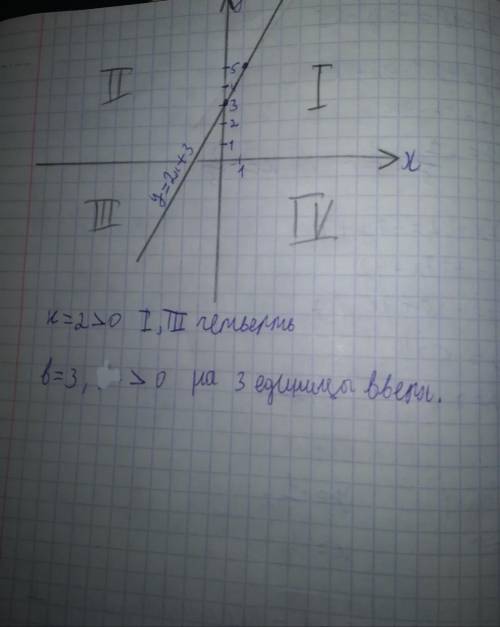 II
I
5
4
3
2
1
1
x
y=2x+3
III
IV
к=2>0 I, III четверть
b=3, >0 на 3 единицы вверх.